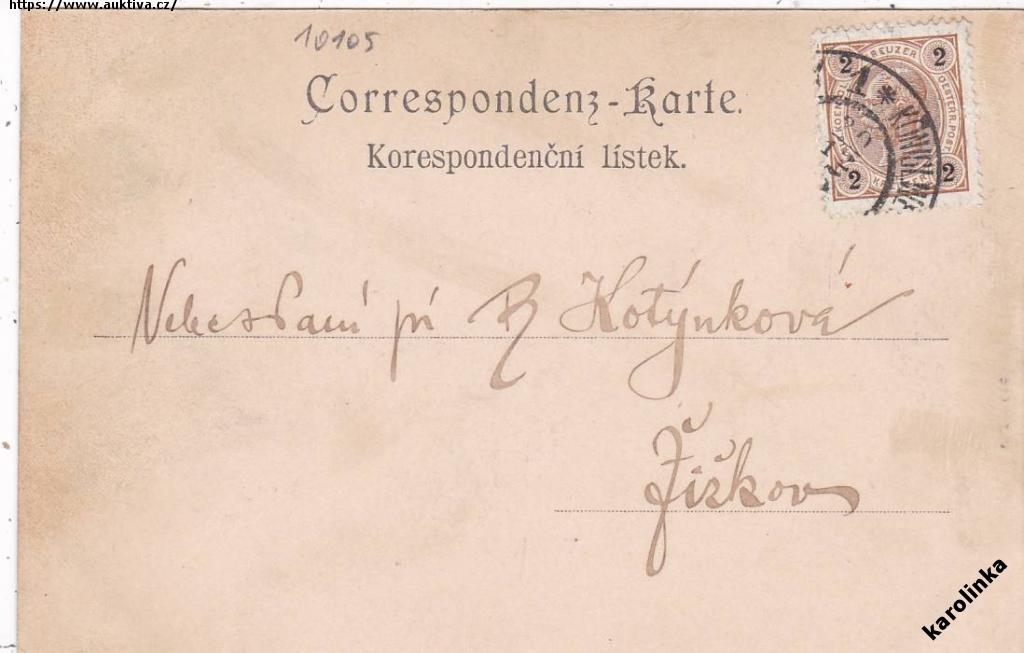 https://www.auktiva.cz/
10105
Correspondenz-Karte.
Korespondenční lístek.
2 KREUZER 2
OESTERR. POST.
2 2
1 *
pí R Kotýnková
Žižkov
karolinka